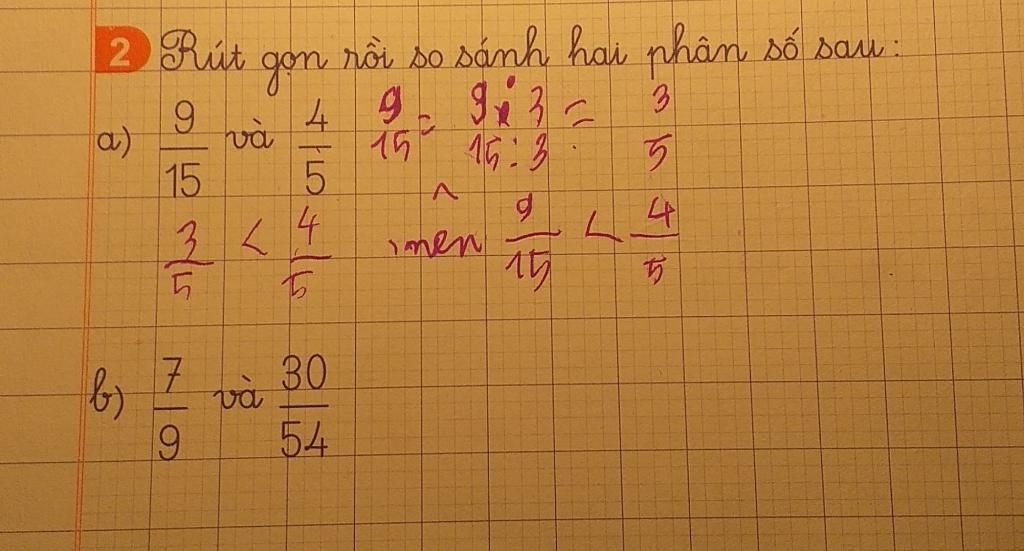 2 Rút gọn rồi so sánh hai phân số sau:
a) 9/15 và 4/5 9/15 = 9:3/15:3 = 3/5
3/5 < 4/5 , nên 9/15 < 4/5
b) 7/9 và 30/54